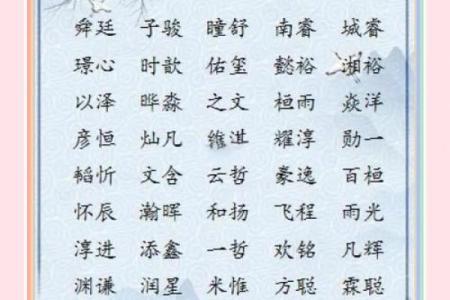 舜廷 子骏 瞳舒 南睿 城睿
璟心 时歆 佑玺 懿裕 湘裕
以泽 晔淼 之文 桓雨 焱洋
彦恒 灿凡 维淇 耀淳 勋一
韬忻 文含 云哲 豪逸 百桓
怀辰 瀚晖 和扬 飞程 雨光
淳进 添鑫 一哲 欢铭 凡辉
渊谦 润星 米惟 方聪 霖聪